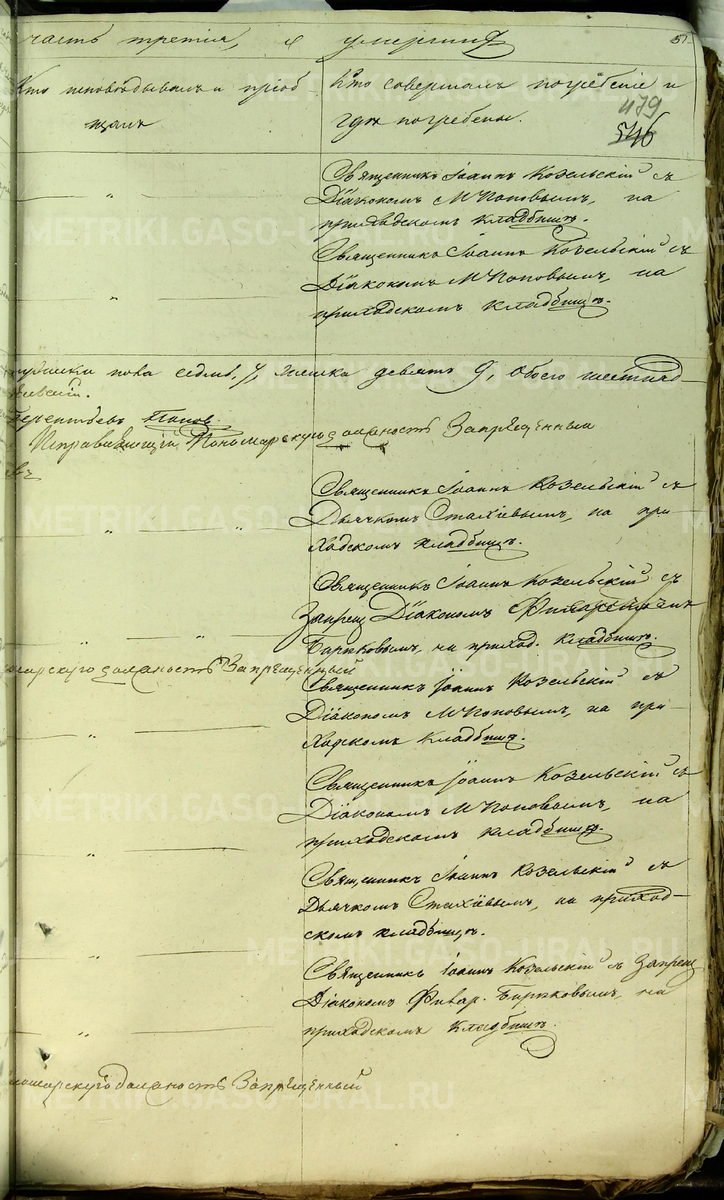 часть третія, о умершихъ
51.
Кто исповѣдывалъ и пріоб-
щалъ
Кто совершалъ погребеніе и
гдѣ погребены.
479
546
Священникъ Іоаннъ Козельскій съ
Діакономъ М Поповымъ, на
приходскомъ кладбищѣ.
Священникъ Іоаннъ Козельскій съ
Діакономъ М Поповымъ, на
приходскомъ кладбищѣ.
пола седмь, 7, женска девять 9, обоего шестнад-
Терентьевъ Поповъ
Исправляющій Пономарскую должность Запрещенный
Священникъ Іоаннъ Козельскій съ
Дьячкомъ Стахіевымъ, на при-
ходскомъ кладбищѣ.
Священникъ Іоаннъ Козельскій съ
Запрещ Діакономъ
Бирюковымъ, на приход. кладбищѣ.
должность Запрещенный
Священникъ Іоаннъ Козельскій съ
Діакономъ М Поповымъ, на при-
ходскомъ кладбищѣ.
Священникъ Іоаннъ Козельскій съ
Діакономъ М Поповымъ, на
приходскомъ кладбищѣ.
Священникъ Іоаннъ Козельскій съ
Дьячкомъ Стахіевымъ, на приход-
скомъ кладбищѣ.
Священникъ Іоаннъ Козельскій съ Запрещ
Діакономъ Бирюковымъ, на
приходскомъ кладбищѣ.
должность Запрещенный
METRIKI.GASO-URAL.RU